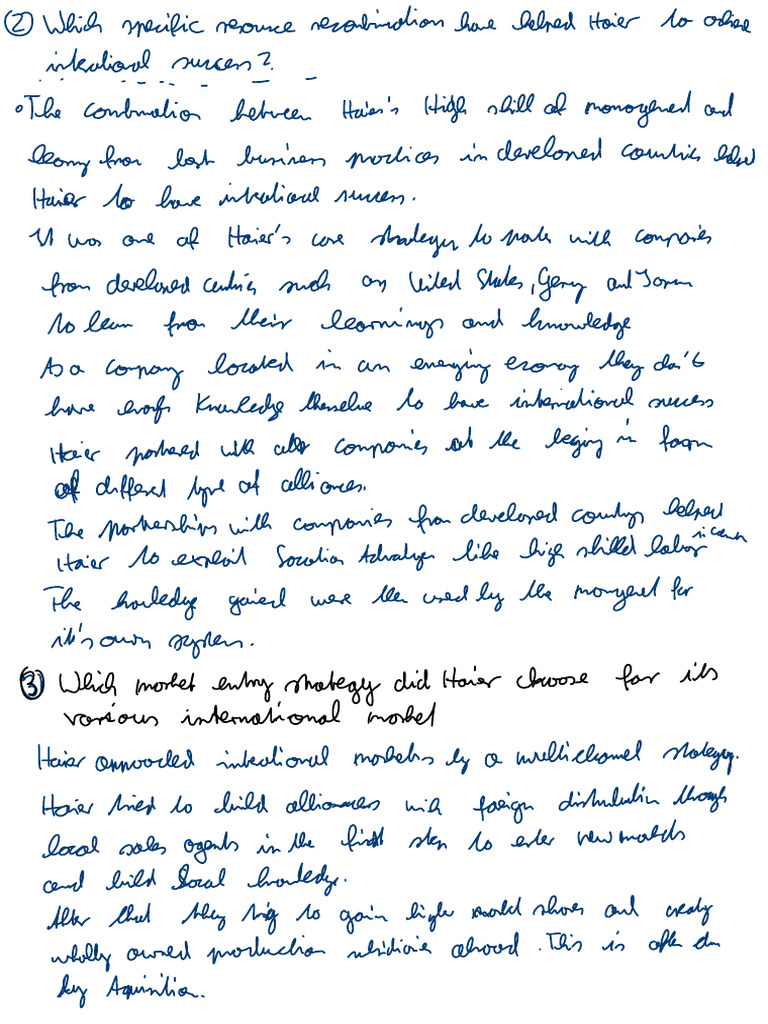 ② Which specific resource recombination have helped Haier to achieve
international success?
• The combination between Haier's High skill of management and
learning from last business practices in developed countries helped
Haier to have international success.
It was one of Haier's core strategy to with companies
from developed countries such as United States, Germany and
to learn from their learnings and knowledge
As a company located in an emerging economy they don't
have knowledge to have international success
Haier partnered with companies at the in form
of different type of alliances.
The partnerships with companies from developed countrys helped
Haier to exploit Location Advantages like high skilled labor
The knowledge gained were then used by the management for
it's own system.
③ Which market entry strategy did Haier choose for its
various international market
Haier international markets by a multichannel strategy.
Haier tried to build alliances with foreign distribution through
local sales agents in the first step to enter new markets
and build local knowledge.
After that they to gain market shares and
wholly owned production subsidiaries abroad. This is often
by Aquisition.